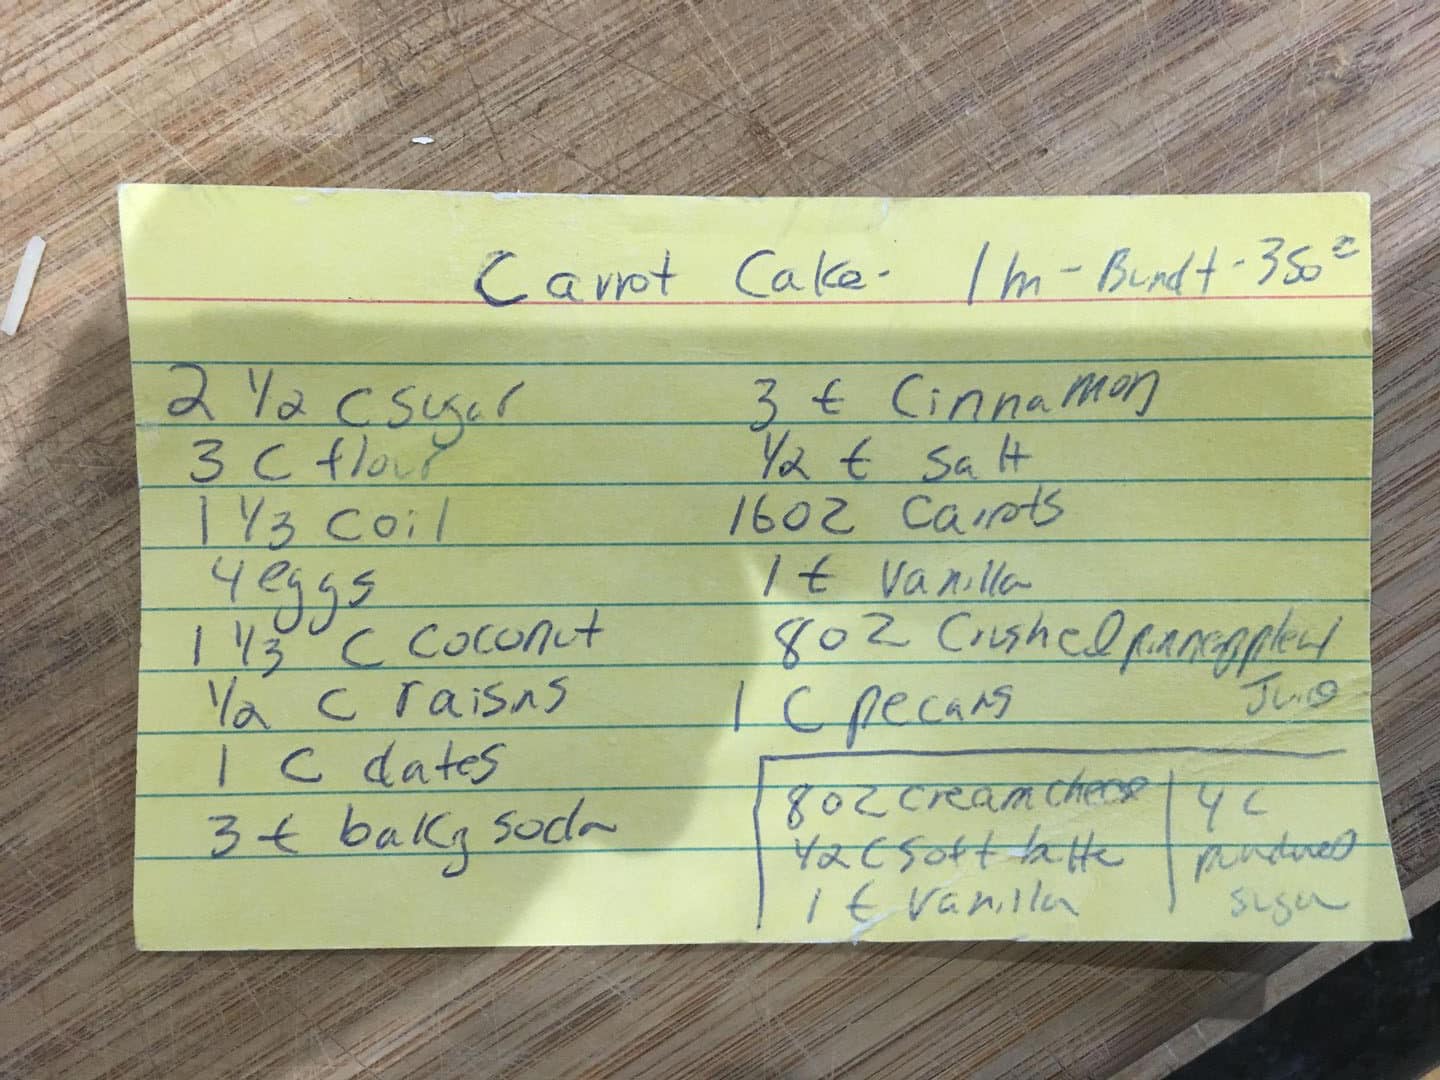 Carrot Cake - 1 hr - Bundt - 350°
2 1/2 C sugar
3 C flour
1 1/3 C oil
4 eggs
1 1/3 C coconut
1/2 C raisns
1 C dates
3 t bakg soda
3 t Cinnamon
1/2 t salt
16oz Carrots
1 t Vanilla
8oz Crushed
Juice
1 C pecans
8oz cream cheese
1/2 C soft butte
1 t Vanilla
4 C
sugar